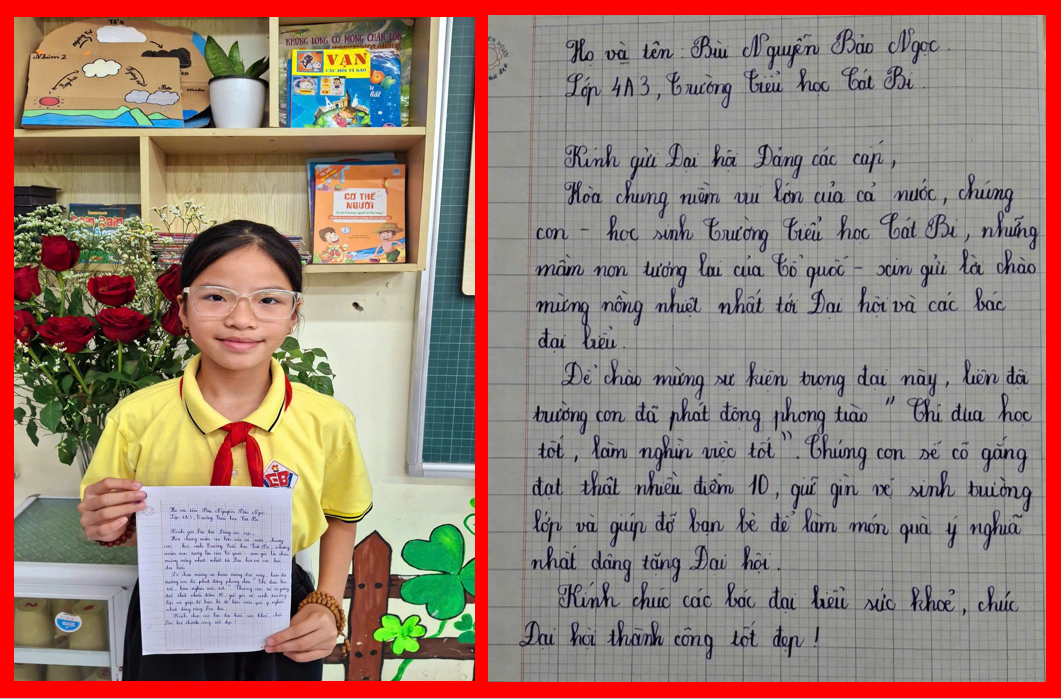 Nhóm 2
KHỦNG LONG CÓ MỌNG CHÂN LỚN
VẠN
CÂU HỎI VÌ SAO
CƠ THỂ
NGƯỜI
Họ và tên : Bùi Nguyễn Bảo Ngọc.
Lớp 4A3, Trường Tiểu học Cát Bi.
Kính gửi Đại hội Đảng các cấp,
Hòa chung niềm vui lớn của cả nước, chúng
con - học sinh Trường Tiểu học Cát Bi, những
mầm non tương lai của Tổ quốc - xin gửi lời chào
mừng nồng nhiệt nhất tới Đại hội và các bác
đại biểu.
Để chào mừng sự kiện trọng đại này, liên đội
trường con đã phát động phong trào " Thi đua học
tốt, làm nghìn việc tốt". Chúng con sẽ cố gắng
đạt thật nhiều điểm 10, giữ gìn vệ sinh trường
lớp và giúp đỡ bạn bè để làm món quà ý nghĩa
nhất dâng tặng Đại hội.
Kính chúc các bác đại biểu sức khoẻ, chúc
Đại hội thành công tốt đẹp !